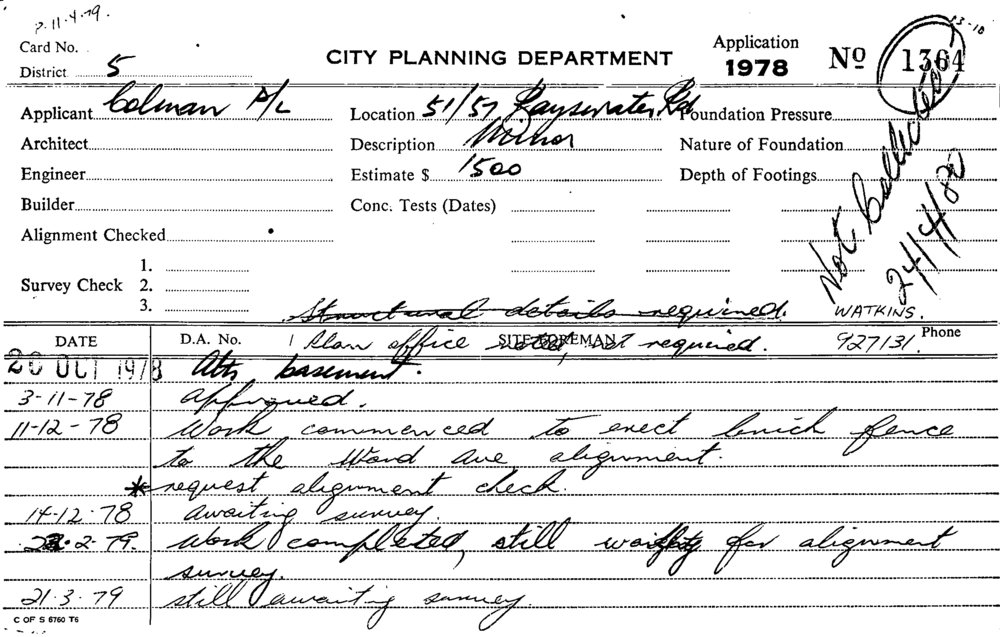 P. 11·4·79.
Card No.
District 5
CITY PLANNING DEPARTMENT
Application
1978
No 1364
13-10
Applicant Colman P/L
Location 51/57 Bayswater Rd
Foundation Pressure
Architect
Description Minor
Nature of Foundation
Engineer
Estimate $ 1500
Depth of Footings
Builder
Conc. Tests (Dates)
Alignment Checked
Survey Check
1.
2.
3.
Not Collected
24/4/80
Structural details required.
WATKINS.
DATE
D.A. No.
SITE FOREMAN
927131. Phone
Plan office noted, not required.
20 OCT 1978 Alts basement.
3-11-78 Approved.
11-12-78 Work commenced to erect brick fence
to the Ward Ave alignment.
* request alignment check.
14-12-78 awaiting survey.
2·79. Work completed, still waiting for alignment
survey.
21·3·79 still awaiting survey.
C OF S 6760 T6